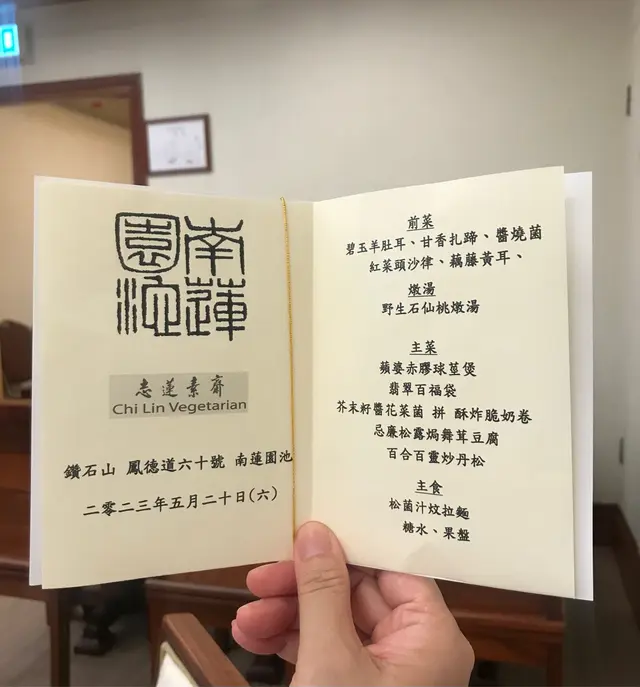 南蓮
園池
志蓮素齋
Chi Lin Vegetarian
鑽石山 鳳德道六十號 南蓮園池
二零二三年五月二十日(六)
前菜
碧玉羊肚耳、甘香扎蹄、醬燒菌
紅菜頭沙律、藕藤黃耳、
燉湯
野生石仙桃燉湯
主菜
蘋婆赤膠球荳煲
翡翠百福袋
芥末籽醬花菜菌 拼 酥炸脆奶卷
忌廉松露焗舞茸豆腐
百合百靈炒丹松
主食
松菌汁炆拉麵
糖水、果盤